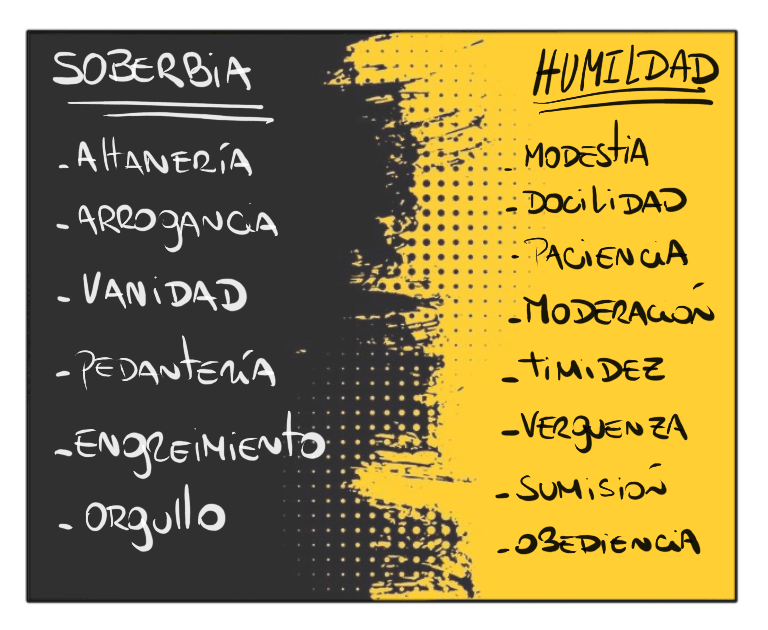 SOBERBiA
- AltANERíA
- ARROGANCiA
- VANiDAD
- PEDANtERíA
- ENgREiMiENtO
- ORgullo
HUMILDAD
- MODEStiA
- DOCiLiDAD
- PACiENCiA
- MODERACióN
- tiMiDEZ
- VERgUENZA
- SUMiSióN
- OBEDiENCiA